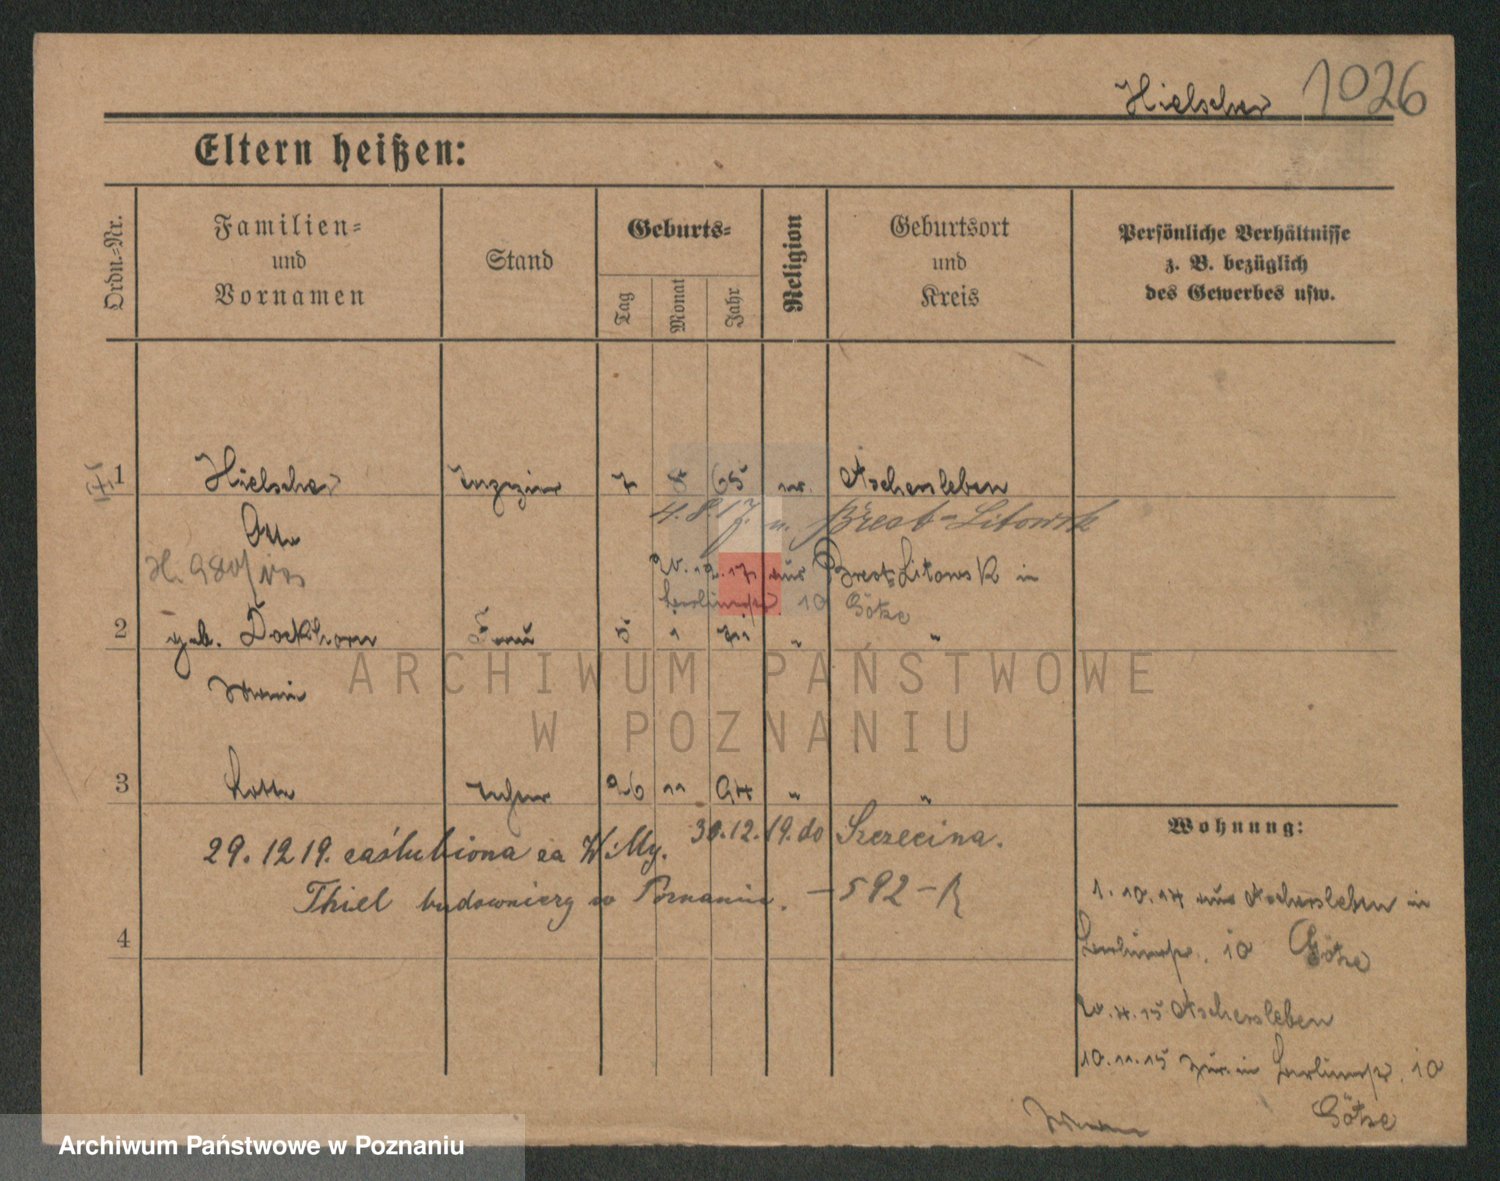 Hielscher 1026
Eltern heißen:
Ordn.-Nr.
Familien-
und
Vornamen
Stand
Geburts-
Tag
Monat
Jahr
Religion
Geburtsort
und
Kreis
Persönliche Verhältnisse
z. B. bezüglich
des Gewerbes usw.
1 Hielscher 7 8 65 Aschersleben
4.8.17 n. Brest-Litowsk
Otto
20.12.17 aus Brest-Litowsk in
Berlinerstr. 10 Götze
2 geb. Dockhorn Frau 5 1 " "
3 Lotte 26 11 94 " "
29.12 19. zaślubiona za Willy. 30.12.19. do Szczecina.
Thiel budowniczy w Poznaniu. – 592 – R
4
Wohnung:
1.10.14 aus Aschersleben in
Berlinerstr. 10 Götze
20.4.15 Aschersleben
10.11.15 zur. in Berlinerstr. 10
Götze
ARCHIWUM PAŃSTWOWE
W POZNANIU
Archiwum Państwowe w Poznaniu